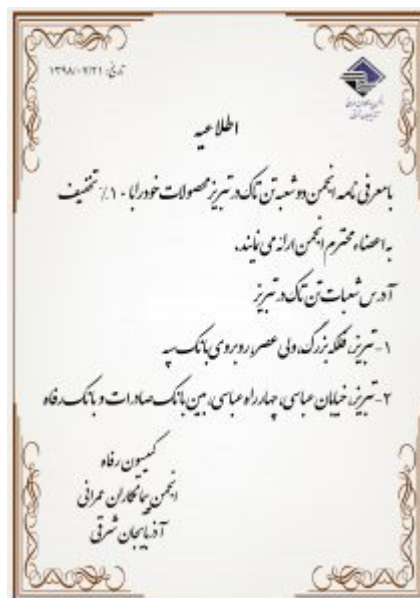 تاریخ: ۱۳۹۸/۰۷/۲۱
اطلاعیه
با معرفی نامه انجمن دو شعبه تن تاک در تبریز محصولات خود را با ۱۰٪ تخفیف
به اعضاء محترم انجمن ارائه می نمایند.
آدرس شعبات تن تاک در تبریز
۱- تبریز، فلکه بزرگ، ولی عصر، روبروی بانک سپه
۲- تبریز، خیابان عباسی، چهارراه عباسی، بین بانک صادرات و بانک رفاه
کمیسیون رفاه
انجمن پیمانکاران عمرانی
آذربایجان شرقی